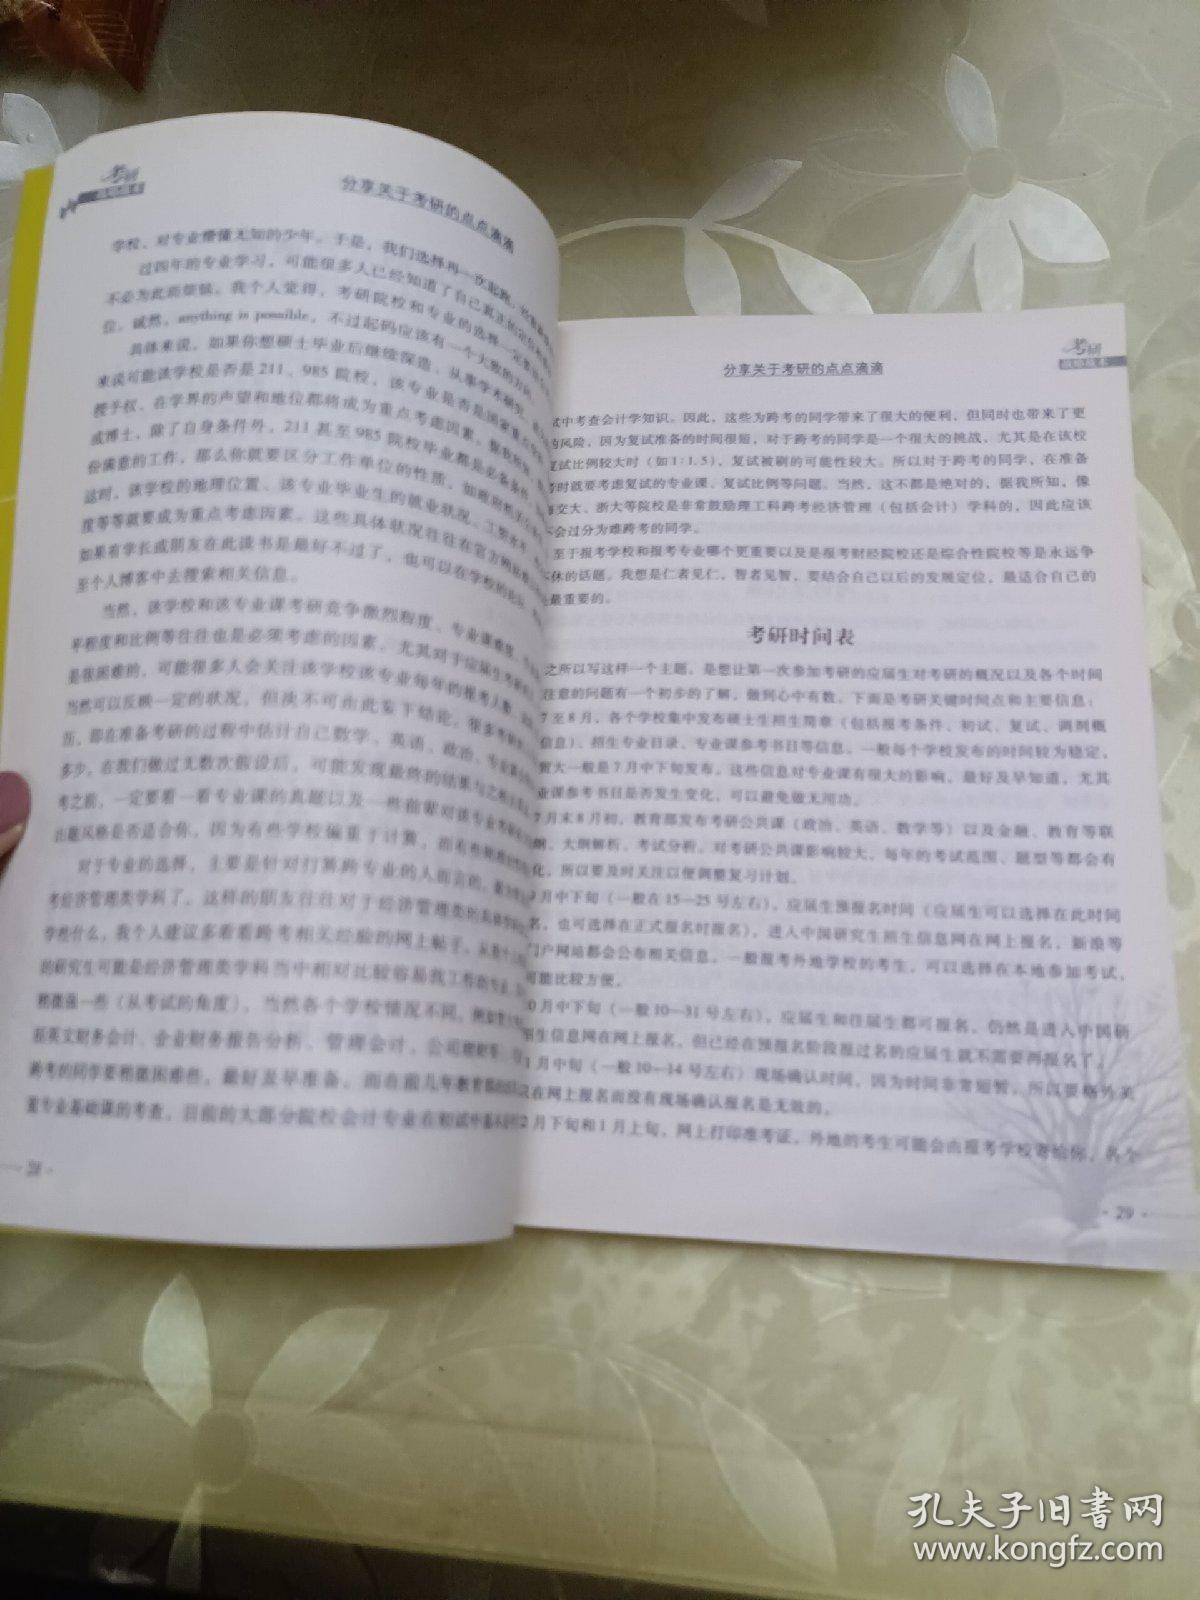 考研
分享关于考研的点点滴滴
学校、对专业懵懂无知的少年。于是，我们选择再一次起跑，
过四年的专业学习，可能很多人已经知道了自己真正的定位
不必为此而烦恼。我个人觉得，考研院校和专业的选择一定要
位。诚然，anything is possible，不过起码应该有一个大致的方向。
具体来说，如果你想硕士毕业后继续深造、从事学术研究，
来说可能该学校是否是211、985院校，该专业是否是国家重点
授予权、在学界的声望和地位都将成为重点考虑因素。
或博士，除了自身条件外，211甚至985院校毕业都是必备条件。
份满意的工作，那么你就要区分工作单位的性质，如政府机关
这时，该学校的地理位置、该专业毕业生的就业状况、工资水平、
度等等就要成为重点考虑因素。这些具体状况往往在官方网站
如果有学长或朋友在此读书是最好不过了，也可以在学校的论坛、
至个人博客中去搜索相关信息。
当然，该学校和该专业课考研竞争激烈程度、专业课难度、
平程度和比例等往往也是必须考虑的因素。尤其对于应届生考研
是很困难的，可能很多人会关注该学校该专业每年的报考人数、
当然可以反映一定的状况，但决不可由此妄下结论。很多考研
历，即在准备考研的过程中估计自己数学、英语、政治、专业课
多少。在我们做过无数次假设后，可能发现最终的结果与之
考之前，一定要看一看专业课的真题以及一些指帮对该专业考研
出题风格是否适合你，因为有些学校偏重于计算，而有些
对于专业的选择，主要是针对打算跨专业的人而言的。
考经济管理类学科了。这样的朋友往往对于经济管理类的具体学科
学些什么，我个人建议多看看跨考相关经验的网上帖子。
的研究生可能是经济管理类学科当中相对比较容易找工作的专业，
稍微强一些（从考试的角度），当然各个学校情况不同，例如
括英文财务会计、企业财务报告分析、管理会计、公司理财等，
跨考的同学要稍微困难些，最好及早准备。而在前几年教育部
重专业基础课的考查。目前的大部分院校会计专业在初试中
28
考研
分享关于考研的点点滴滴
试中考查会计学知识。因此，这些为跨考的同学带来了很大的便利，但同时也带来了更
的风险，因为复试准备的时间很短，对于跨考的同学是一个很大的挑战，尤其是在该校
复试比例较大时（如1∶1.5），复试被刷的可能性较大。所以对于跨考的同学，在准备
考时就要考虑复试的专业课、复试比例等问题。当然，这不都是绝对的，据我所知，像
交大、浙大等院校是非常鼓励理工科跨考经济管理（包括会计）学科的，因此应该
会过分为难跨考的同学。
至于报考学校和报考专业哪个更重要以及是报考财经院校还是综合性院校等是永远争
休的话题。我想是仁者见仁，智者见智，要结合自己以后的发展定位，最适合自己的
最重要的。
考研时间表
之所以写这样一个主题，是想让第一次参加考研的应届生对考研的概况以及各个时间
注意的问题有一个初步的了解，做到心中有数。下面是考研关键时间点和主要信息：
7至8月，各个学校集中发布硕士生招生简章（包括报考条件、初试、复试、调剂概
信息）、招生专业目录、专业课参考书目等信息，一般每个学校发布的时间较为稳定，
贸大一般是7月中下旬发布，这些信息对专业课有很大的影响，最好及早知道，尤其
业课参考书目是否发生变化，可以避免做无用功。
7月末8月初，教育部发布考研公共课（政治、英语、数学等）以及金融、教育等联
纲、大纲解析、考试分析。对考研公共课影响较大，每年的考试范围、题型等都会有
化，所以要及时关注以便调整复习计划。
月中下旬（一般在15—25号左右），应届生预报名时间（应届生可以选择在此时间
名，也可选择在正式报名时报名），进入中国研究生招生信息网在网上报名，新浪等
门户网站都会公布相关信息。一般报考外地学校的考生，可以选择在本地参加考试，
可能比较方便。
0月中下旬（一般10—31号左右），应届生和往届生都可报名，仍然是进入中国研
招生信息网在网上报名，但已经在预报名阶段报过名的应届生就不需要再报名了。
1月中旬（一般10—14号左右）现场确认时间，因为时间非常短暂，所以要格外关
仅在网上报名而没有现场确认报名是无效的。
2月下旬和1月上旬，网上打印准考证，外地的考生可能会由报考学校寄给你，各个
· 29 ·
孔夫子旧书网
www.kongfz.com